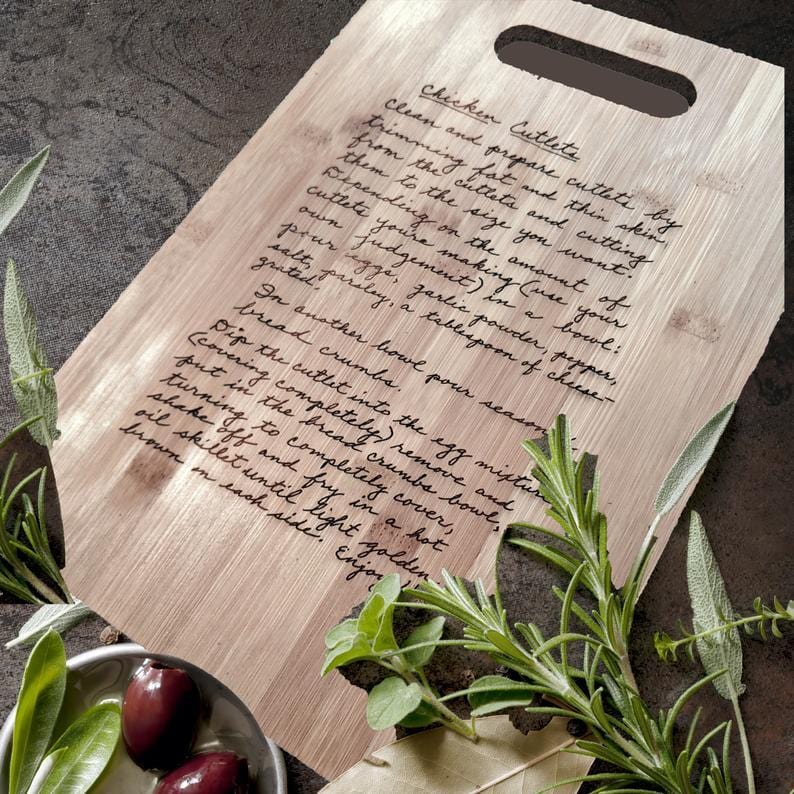 Chicken Cutlets
Clean and prepare cutlets by
trimming fat and thin skin
from the cutlets and cutting
them to the size you want.
Depending on the amount of
cutlets you're making (use your
own judgement) in a bowl:
pour eggs, garlic powder, pepper,
salt, parsley, a tablespoon of cheese-
grated.
In another bowl pour season
bread crumbs.
Dip the cutlet into the egg mixture
(covering completely) remove and
put in the bread crumbs bowl,
turning to completely cover,
shake off and fry in a hot
oil skillet until light golden
brown on each side. Enjoy